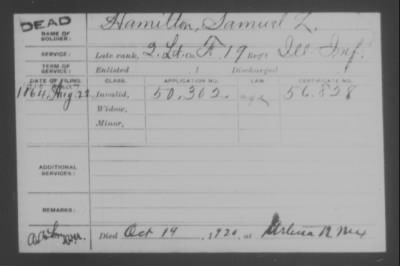 DEAD
NAME OF SOLDIER: Hamilton, Samuel L.
SERVICE: Late rank, 2. Lt. Co. F. 19 Reg't Ill. Inf.
TERM OF SERVICE: Enlisted 1 Discharged
DATE OF FILING. CLASS. APPLICATION NO. LAW. CERTIFICATE NO.
1864, Aug. 22 Invalid, 50.302. 56.828
Widow,
Minor,
ADDITIONAL SERVICES:
REMARKS:
Died Oct 19, 1920, at N. Mex